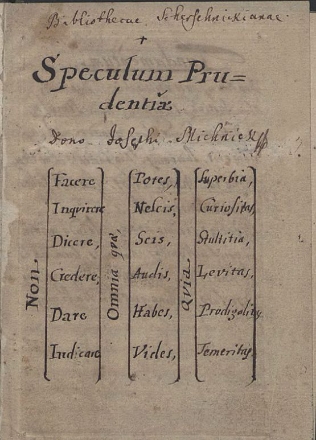 Bibliothecae Scherschnickianae.
+
Speculum Pru=
dentiæ
Dono Josephi Michniek
Non
Facere
Inquirere
Dicere,
Credere,
Dare
Indicare
Omnia quæ,
Potes,
Nescis,
Scis,
Audis,
Habes,
Vides,
Quia
Superbia,
Curiositas,
Stultitia,
Levitas,
Prodigalitas,
Temeritas.